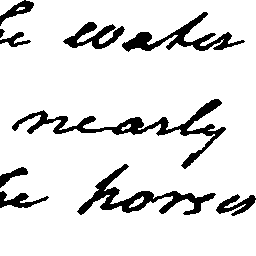 he water
nearly
the horses